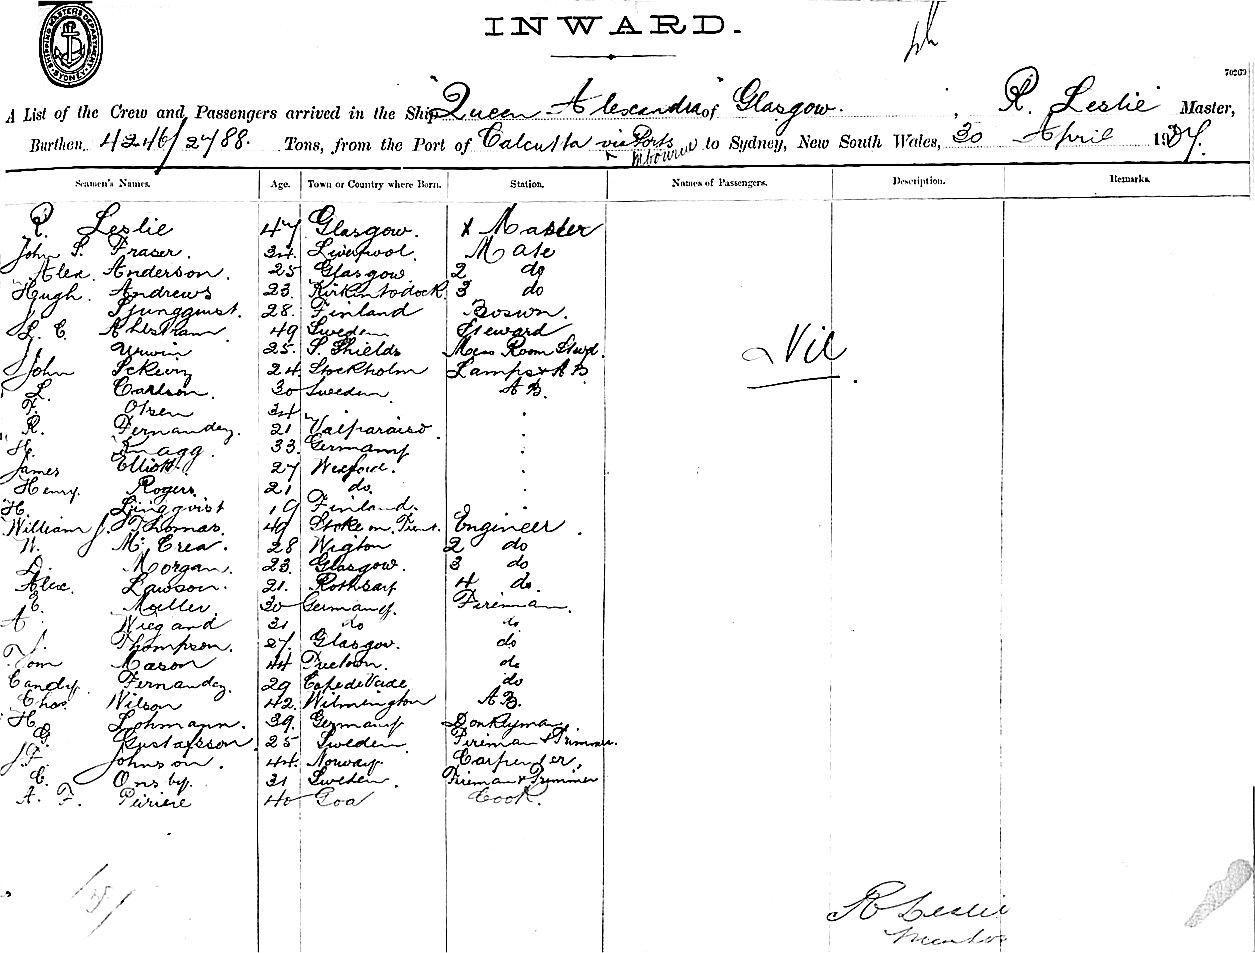 SHIPPING MASTER'S DEPARTMENT SYDNEY
INWARD.
70269
A List of the Crew and Passengers arrived in the Ship "Queen Alexandra" of Glasgow. , R. Leslie Master,
Burthen 4246/2488. Tons, from the Port of Calcutta via Ports to Sydney, New South Wales, 30 April 19
Seamen's Names. Age. Town or Country where Born. Station. Names of Passengers. Description. Remarks.
R. Leslie 47 Glasgow. x Master
John S. Fraser. 34. Liverpool. Mate
Alex. Anderson. 25 Glasgow 2 do
Hugh. Andrews 23. Kirkintodock. 3 do
J. 28. Finland Boswn.
L. C. Ahlstram 49 Sweden Steward
J. Urwin 25. S. Shields Mess Room Stwd.
John 24. Stockholm Lamps & AB
L. Carlson. 30 Sweden. AB.
Nil.
F. Olsen 34 " .
R. Fernandez. 21 Valparaiso .
H. Knagg. 33. Germany .
James Elliott. 27 Wexford. .
Henry. Rogers. 21 do. .
H. Ljungqvist 19 Finland. .
William J. Thomas. 49 Stoke on Trent. Engineer.
W. McCrea. 28 Wigton 2 do
D. Morgan. 23. Glasgow. 3 do
Alex. Lawson. 21. Rothsay 4 do.
E. Muller. 30 Germany. Fireman.
A. Wiegand 31 do do
J. Thompson. 27. Glasgow. do
Tom Mason 44 do
Candy. Fernandez. 29 Cape de Verde do
Chas. Wilson 42. Wilmington AB.
H. Lohmann. 39. Germany Donkeyman.
G. Gustafsson 25 Sweden. Fireman & Trimmer.
J. F. Johnson. 44. Norway. Carpenter.
C. Onsby. 31 Sweden. Fireman & Trimmer
A. F. Peiriere 40 Goa Cook.
R Leslie
Master